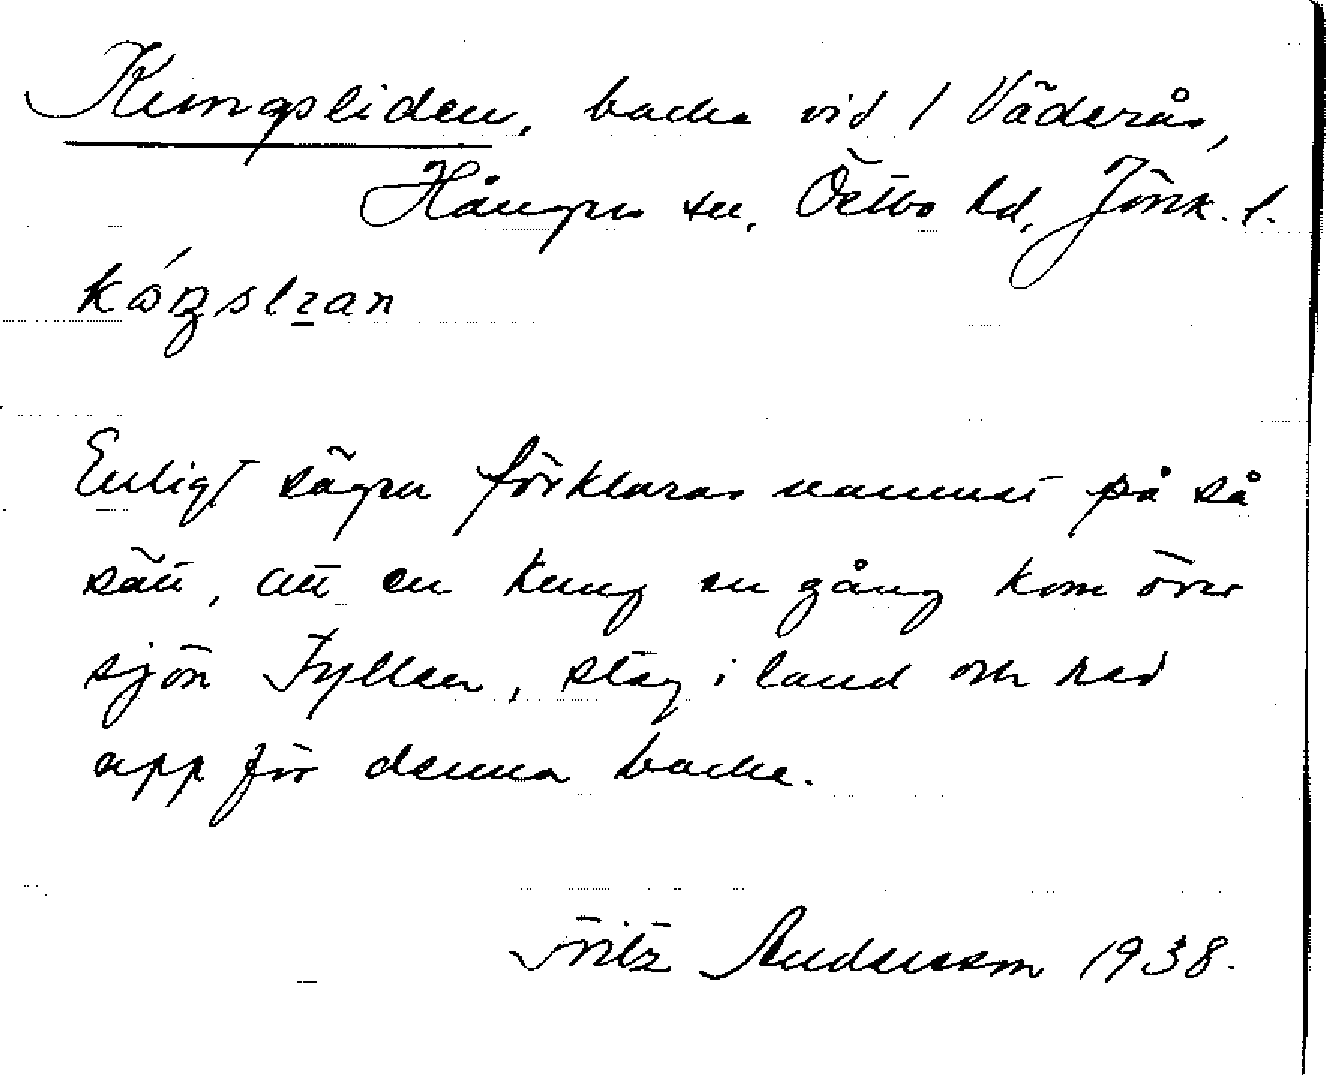 Kungsliden, backe vid / Väderås,
Hångers sn, Östbo hd, Jönk. l.
Enligt sägen förklaras namnet på så
sätt, att en kung en gång kom över
sjön Fyllen, steg i land och red
upp för denna backe.
Fritz Andersson 1938.